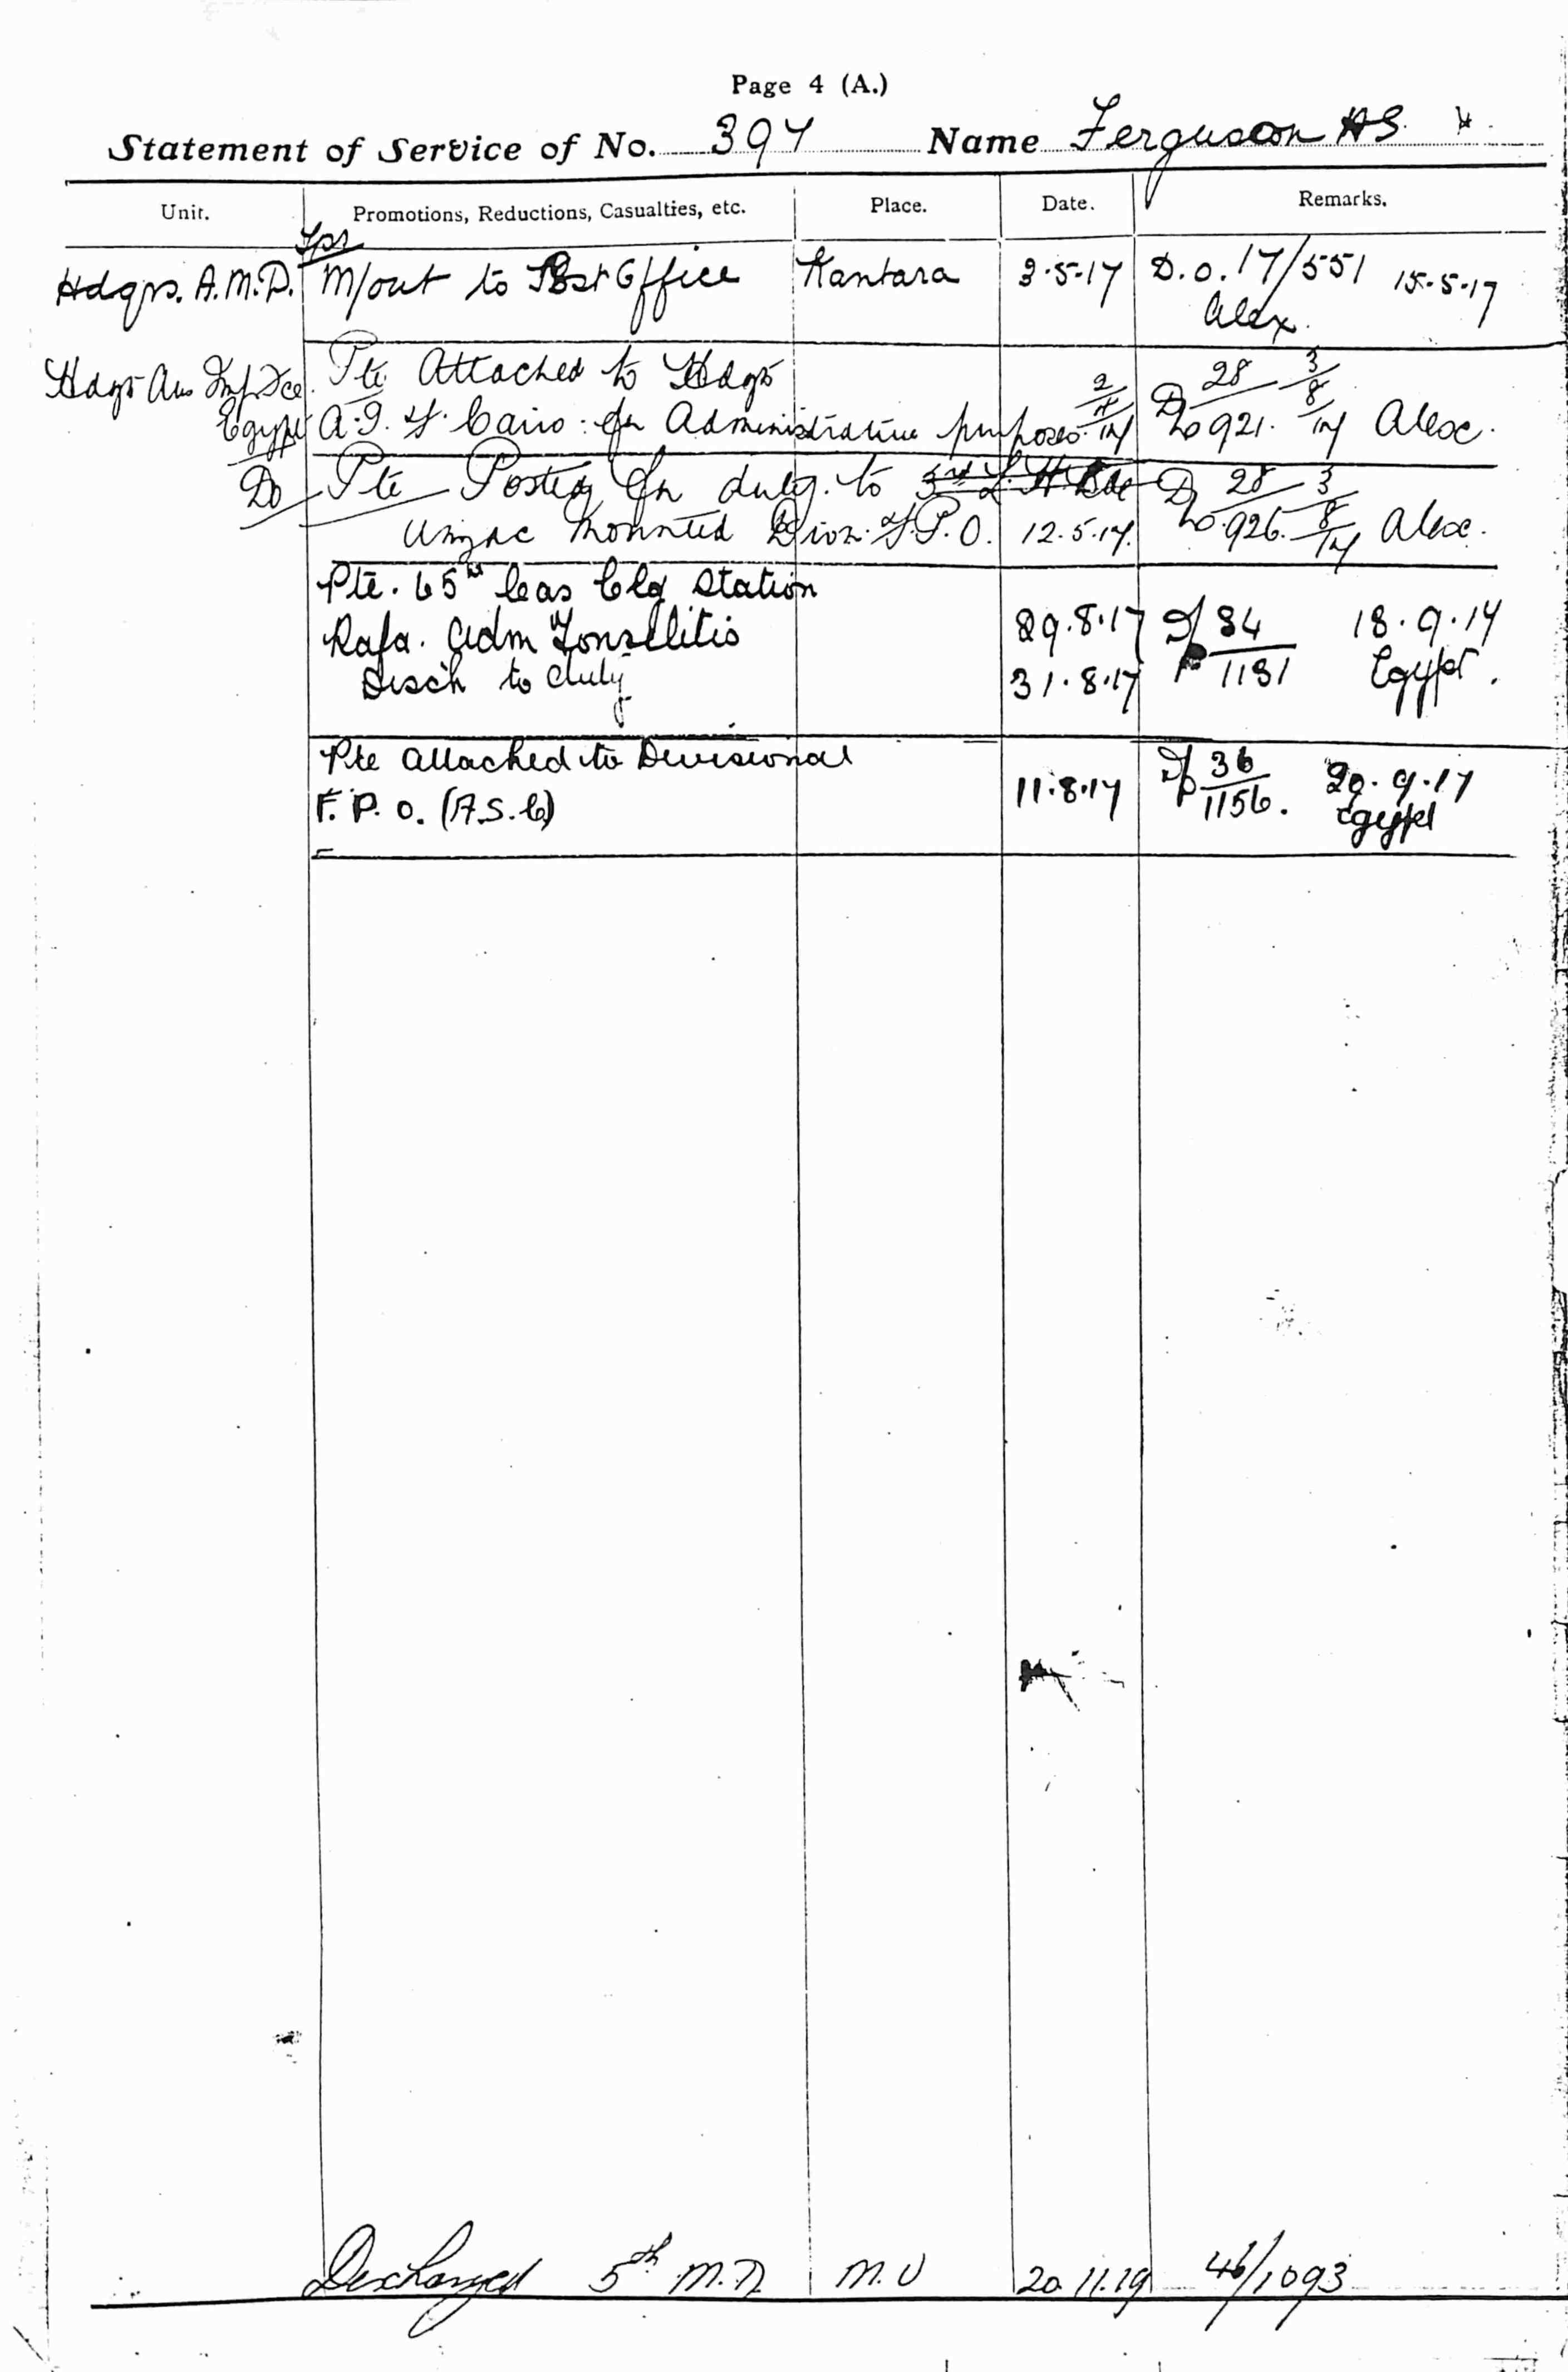 Page 4 (A.)
Statement of Service of No. 397 Name Ferguson HS.
Unit. Promotions, Reductions, Casualties, etc. Place. Date. Remarks.
Tpr
Hdqrs. A.M.D. M/out to Post Office Kantara 3.5.17 D.O. 17/551 15.5.17
Alex.
Hdqrs Aus Imp Fce Pte Attached to Hdqrs 28 3/8/17
Egypt A.I.F. Cairo: for Administrative purposes D/o 921. Alex.
Do Pte Posted for duty to 3rd L.H. Bde 28 3/8/17
Anzac Mounted Divn. F.P.O. 12.5.17. D/o 926. Alex.
Pte. 65th Cas Clg Station
Rafa. Adm Tonsilitis 29.8.17 34 18.9.17
Disch to duty 31.8.17 1131 Egypt.
Pte attached to Divisional 36 29.9.17
F.P.O. (A.S.C) 11.8.17 1156. Egypt
Discharged 5th M.D. M.U 20.11.19 46/1093